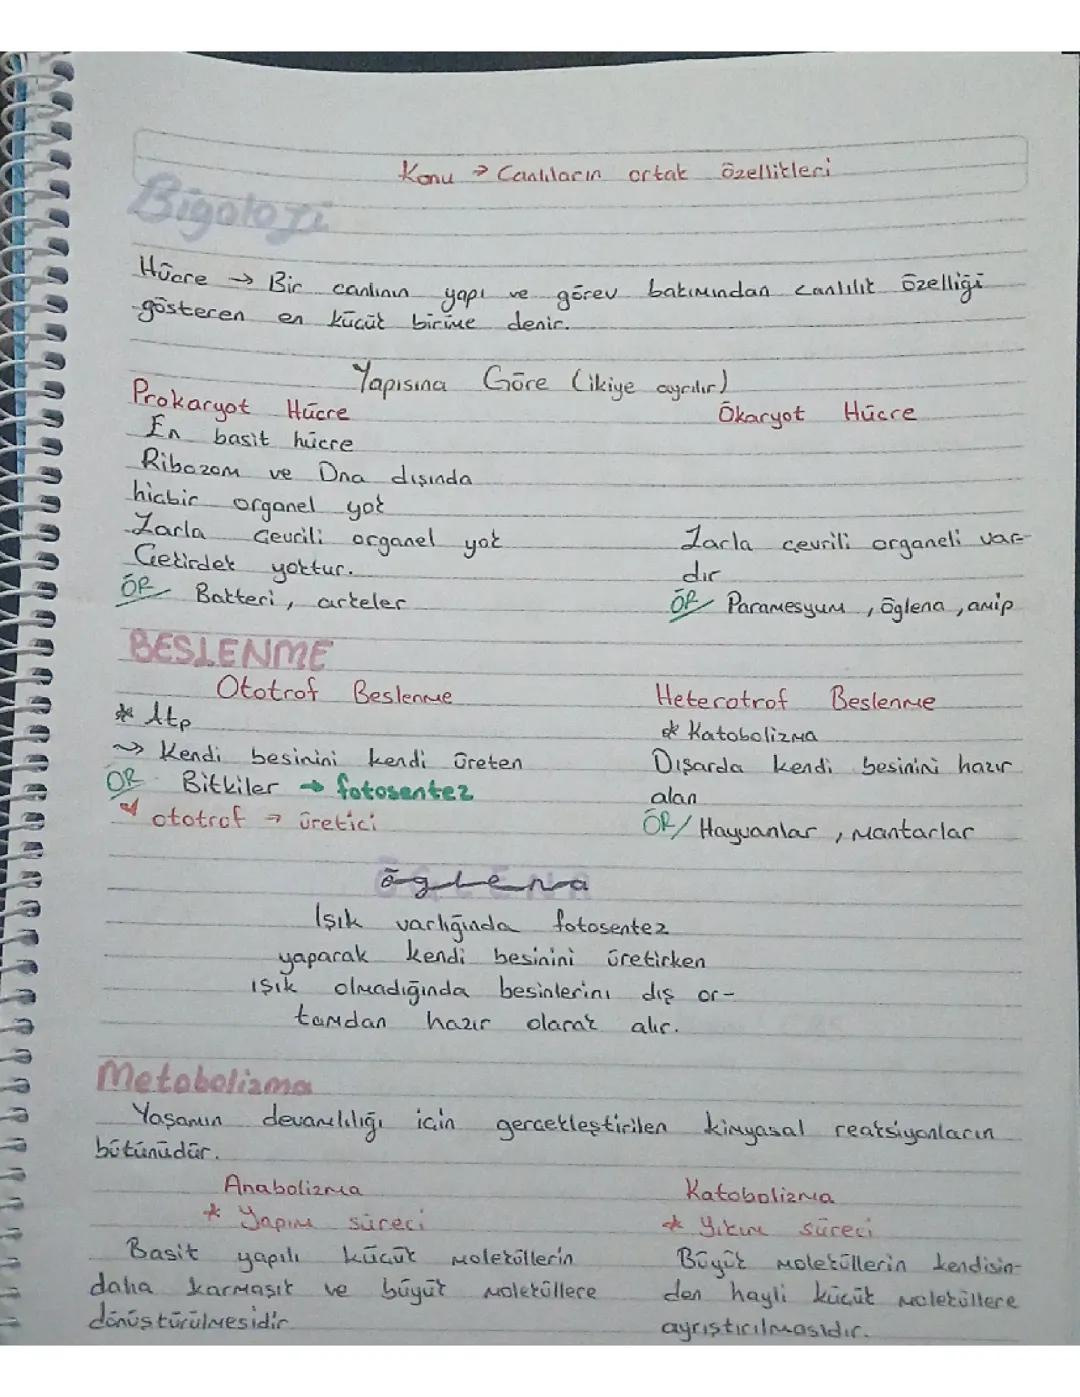 Konu → Canlıların ortak özellikleri
Biyoloji
Hücre → Bir canlının yapı ve görev bakımından canlılık özelliği
gösteren en küçük birime denir.
Yapısına Göre (ikiye ayrılır)
Prokaryot Hücre
En basit hücre
Ribozom ve Dna dışında
hiçbir organel yok
Zarla çevrili organel yok
Çekirdek yoktur.
ÖR Bakteri, arkeler
Ökaryot Hücre
Zarla çevrili organeli var-
dır
ÖR Paramesyum, öglena, amip
BESLENME
Ototrof Beslenme
* Atp
~> Kendi besinini kendi üreten
ÖR Bitkiler → fotosentez
ototrof → üretici
Heterotrof Beslenme
* Katobolizma
Dışarda kendi besinini hazır
alan
ÖR/ Hayvanlar, mantarlar
öglena
Işık varlığında fotosentez
yaparak kendi besinini üretirken
ışık olmadığında besinlerini dış or-
tamdan hazır olarak alır.
Metobolizma
Yaşamın devamlılığı için gerçekleştirilen kimyasal reaksiyonların
bütünüdür.
Anabolizma
* Yapım süreci
Basit yapılı küçük moleküllerin
daha karmaşık ve büyük moleküllere
dönüştürülmesidir
Katobolizma
* Yıkım süreci
Büyük moleküllerin kendisin-
den hayli küçük moleküllere
ayrıştırılmasıdır.